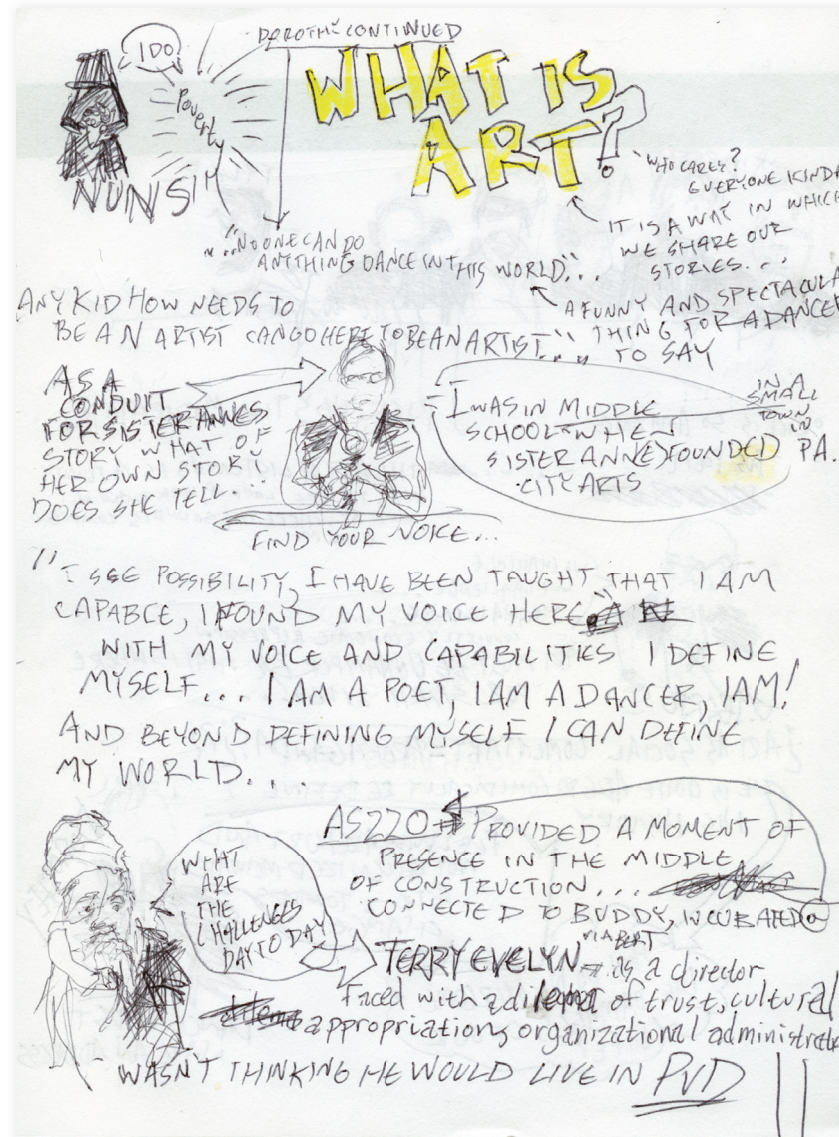 I DO
DAROTHE CONTINUED
Poverty
NUNS!!
WHAT IS
ART?
WHO CARES?
EVERYONE KINDA
IT IS A WAY IN WHICH
WE SHARE OUR
STORIES...
"NO ONE CAN DO
ANYTHING DANCE IN THIS WORLD"...
A FUNNY AND SPECTACULA
THING FOR A DANCER
TO SAY
ANY KID HOW NEEDS TO
BE AN ARTIST CAN GO HERE TO BE AN ARTIST..."
AS A
CONDUIT
FOR SISTER ANNES
STORY WHAT OF
HER OWN STORY
DOES SHE TELL...
I WAS IN MIDDLE
SCHOOL WHEN
SISTER ANNE FOUNDED
CITY ARTS
IN A
SMALL
TOWN
IN
PA.
FIND YOUR VOICE...
"I SEE POSSIBILITY, I HAVE BEEN TAUGHT THAT I AM
CAPABLE, I FOUND MY VOICE HERE
WITH MY VOICE AND CAPABILITIES I DEFINE
MYSELF... I AM A POET, I AM A DANCER, I AM!
AND BEYOND DEFINING MYSELF I CAN DEFINE
MY WORLD...
AS220 PROVIDED A MOMENT OF
PRESENCE IN THE MIDDLE
OF CONSTRUCTION...
CONNECTED TO BUDDY, INCUBATED
VIA BERT
WHAT
ARE
THE
CHALLENGES
DAY TO DAY
TERRY EVELYN as a director
Faced with a dilema of trust, cultural
appropriations, organizational
WASN'T THINKING HE WOULD LIVE IN PVD